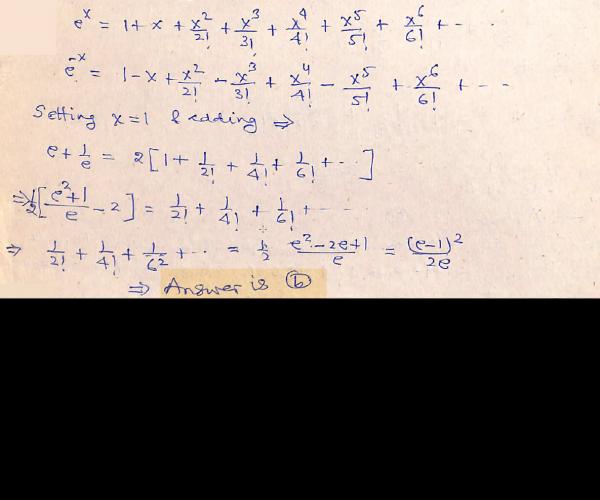 e^x = 1 + x + x²/2! + x³/3! + x⁴/4! + x⁵/5! + x⁶/6! + - - -
e^-x = 1 - x + x²/2! - x³/3! + x⁴/4! - x⁵/5! + x⁶/6! + - - -
Setting x=1 & adding ⇒
e + 1/e = 2[1 + 1/2! + 1/4! + 1/6! + - - ]
⇒ 1/2[(e²+1)/e - 2] = 1/2! + 1/4! + 1/6! + - - -
⇒ 1/2! + 1/4! + 1/6² + - - = 1/2 (e²-2e+1)/e = (e-1)²/2e
⇒ Answer is ⓑ